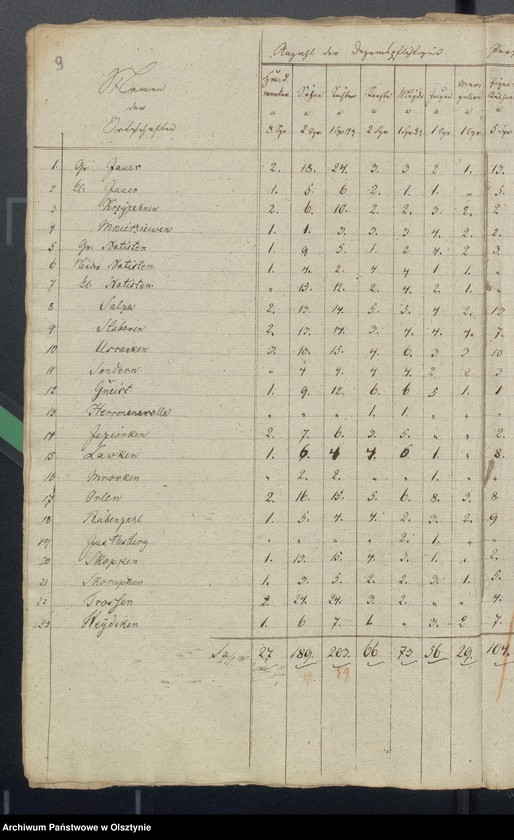 9
Namen
der
Ortschaften
Anzahl der
Söhne
Knechte
Mägde
Jungen
a a a a a a
2 Sgr. 2 Sgr. 1 Sgr. 1 Sgr. 5 Sgr.
1 Gr. Jauer 2. 18. 24. 3. 3 2 1. 13.
2 Kl. Jauer 1. 5. 6 2. 1. 1. " 5.
3 2. 6. 10. 2. 2. 3. 2. 2
4 1. 1. 3. 3. 3 4. 2. 2.
5 Gr. Notisten 1. 9 5. 1. 2 4. 2 3.
6 Notisten 1. 4. 2. 4 4 1. 1. "
7 Kl. Notisten " 15. 12. 2. 4. 2. 1. "
8 Salpa 2. 13. 14. 5. 5. 4 2. 13.
9 Slabowen 2. 13. 14. 3. 4. 4. 4. 7.
10 Uszranken 3. 13. 15. 4. 6. 3 3 10
11 Sondern " 4 4. 4. 4. 2. 2 3
12 Gneist 1. 9. 12. 6. 6 5 1. 1
13 Herrmanawolla " " " 1. 1. " " "
14 Jeziorken 2. 7. 6. 3. 5. " " 2.
15 Lawken 1. 6. 4 4. 6 1. " 8.
16 Mrowken " 2. 2. " " 1. " "
17 Orlen 2. 16. 15. 5. 6. 8. 3. 8
18 Rübenzahl 1. 5. 4. 4. 2. 3. 2. 9
19 " " " " 2. 1. " "
20 Skoppen 1. 13. 15. 4. 3. 1. " 2.
21 Skorupken 1. 3. 5. 2. 2. 3. 1. 5.
22 Trossen 2. 24. 24. 3. 2. " " 4.
23 Weydicken 1. 6 7. 1. " 3. 2 7.
27 189. 203. 66 73 56 29. 104.
Archiwum Państwowe w Olsztynie